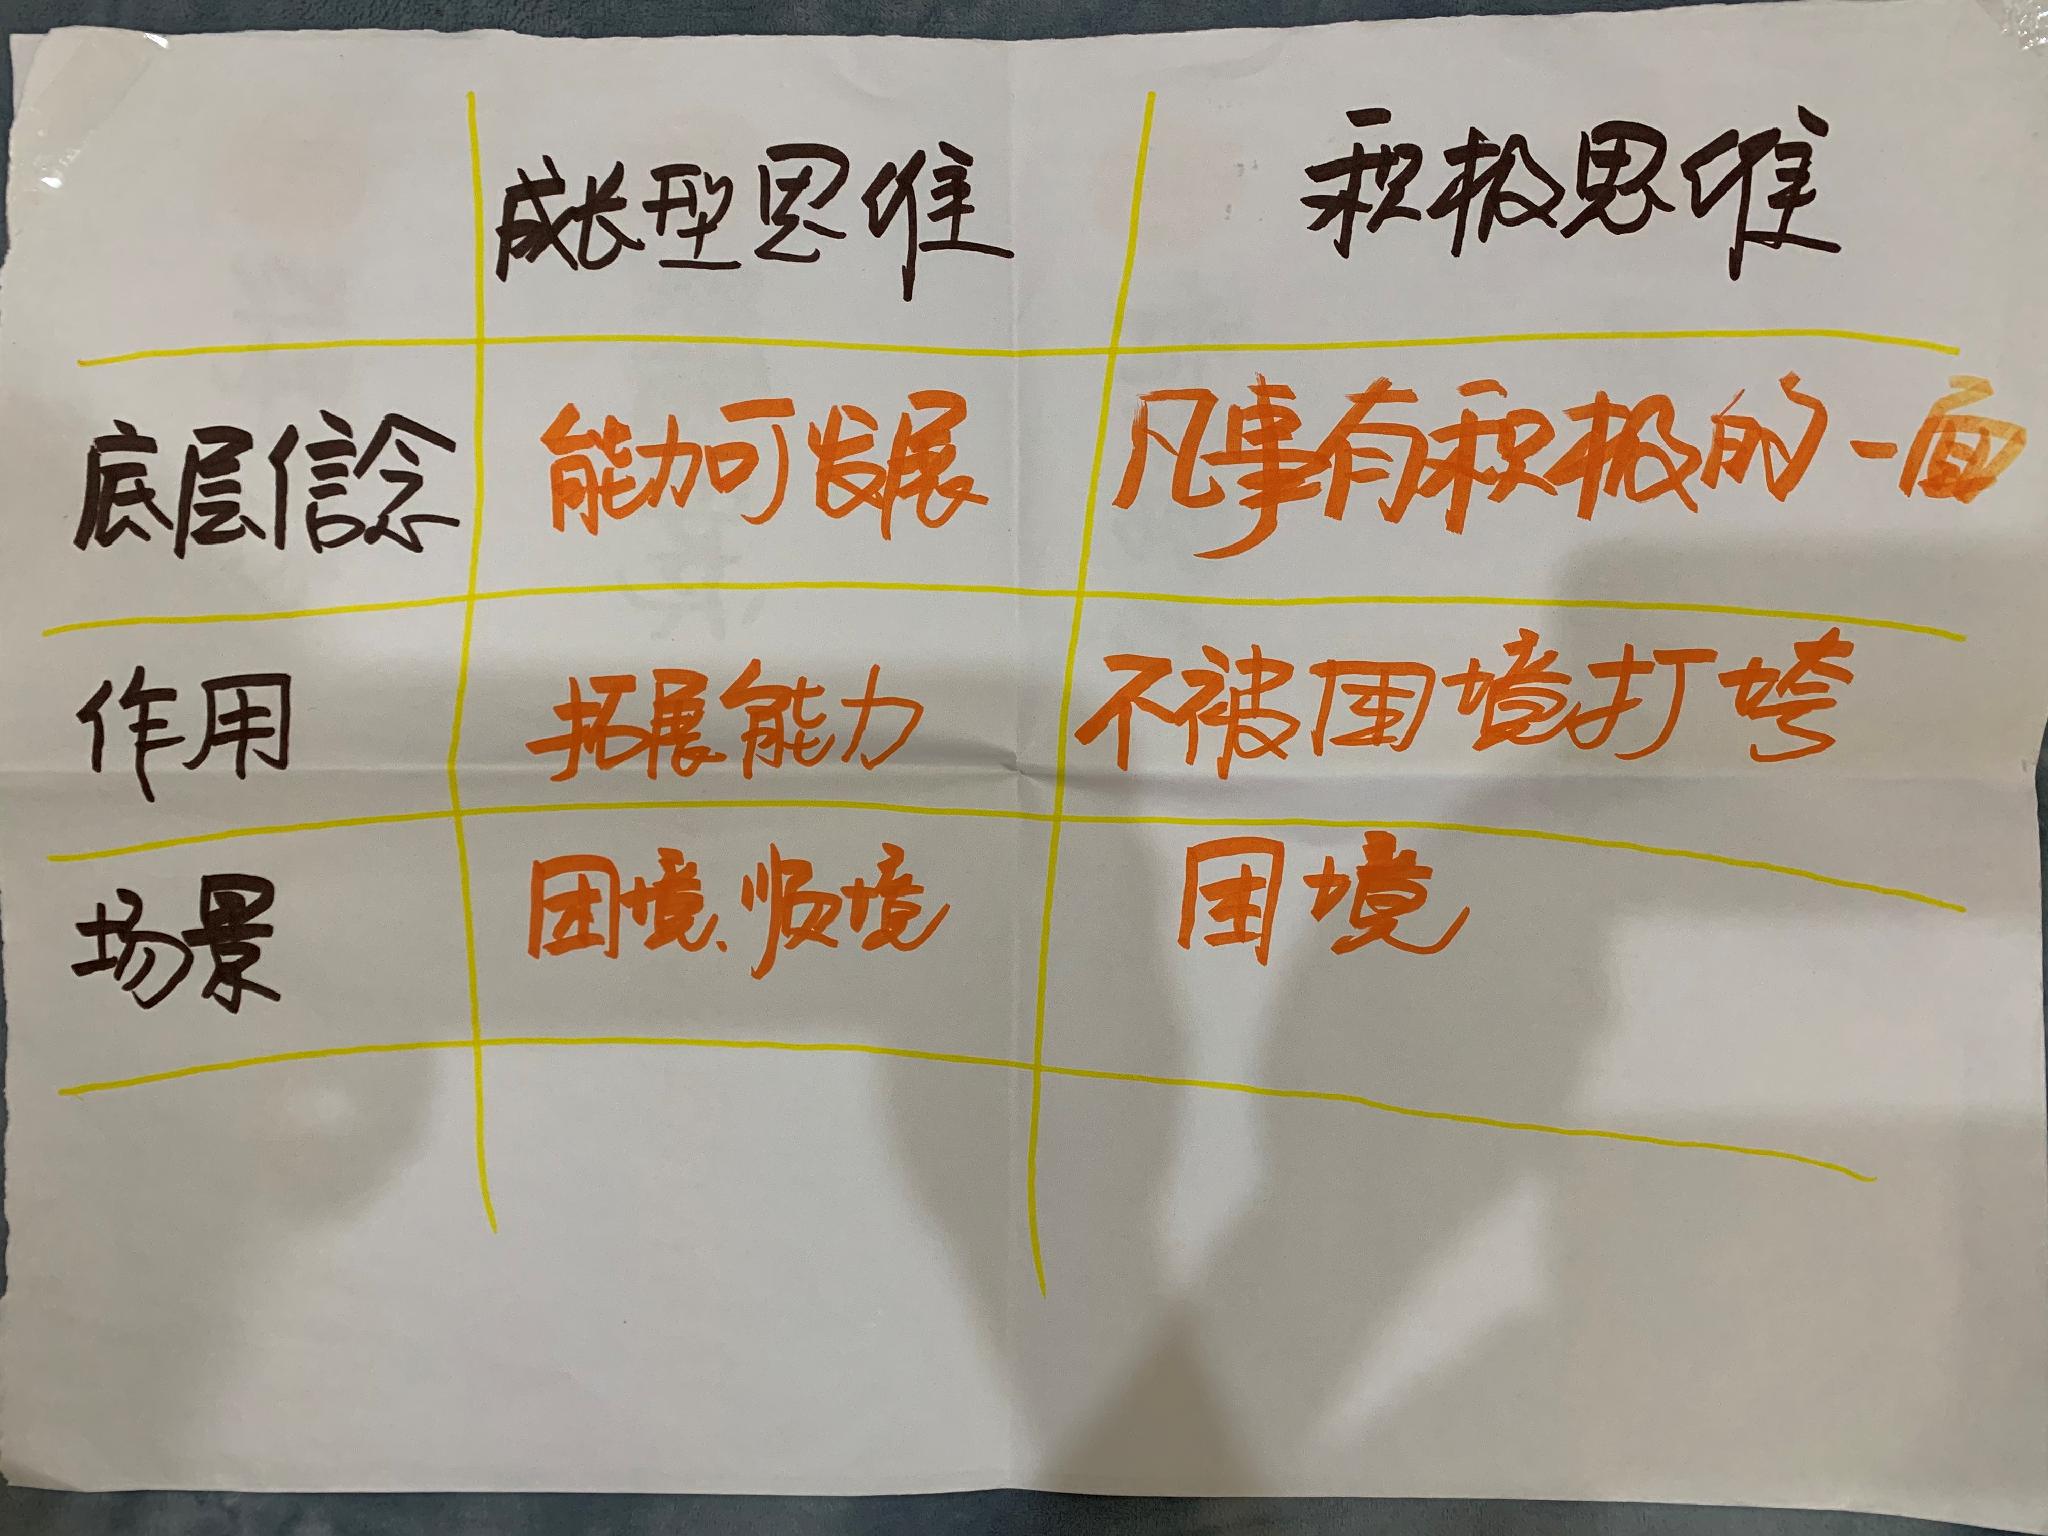 成长型思维 积极思维
底层信念 能力可发展 凡事有积极的一面
作用 拓展能力 不被困境打垮
场景 困境、顺境 困境